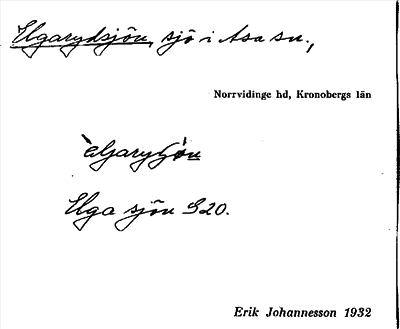 Elgarydsjön, sjö i Asa sn.,
Norrvidinge hd, Kronobergs län
Elga sjön S20.
Erik Johannesson 1932